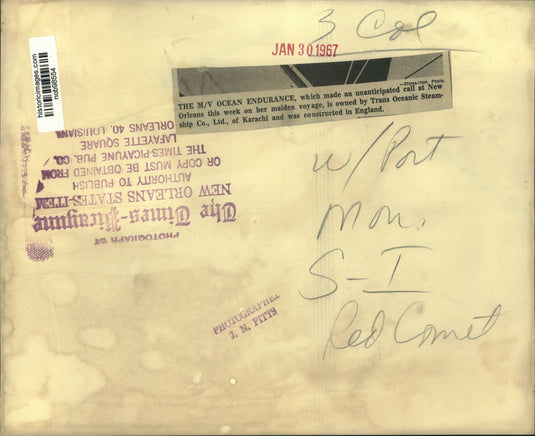 3 Col
JAN 30 1967
historicimages.com
nob98554
—States-Item Photo.
THE M/V OCEAN ENDURANCE, which made an unanticipated call at New
Orleans this week on her maiden voyage, is owned by Trans Oceanic Steam-
ship Co., Ltd., of Karachi and was constructed in England.
w/Port
Mon.
S-I
Red Comet
PHOTOGRAPH BY
The Times-Picayune
NEW ORLEANS STATES-ITEM
AUTHORITY TO PUBLISH
OR COPY MUST BE OBTAINED FROM
THE TIMES-PICAYUNE PUB. CO.
LAFAYETTE SQUARE
ORLEANS 40, LOUISIANA
PHOTOGRAPHER
J. N. PITTS